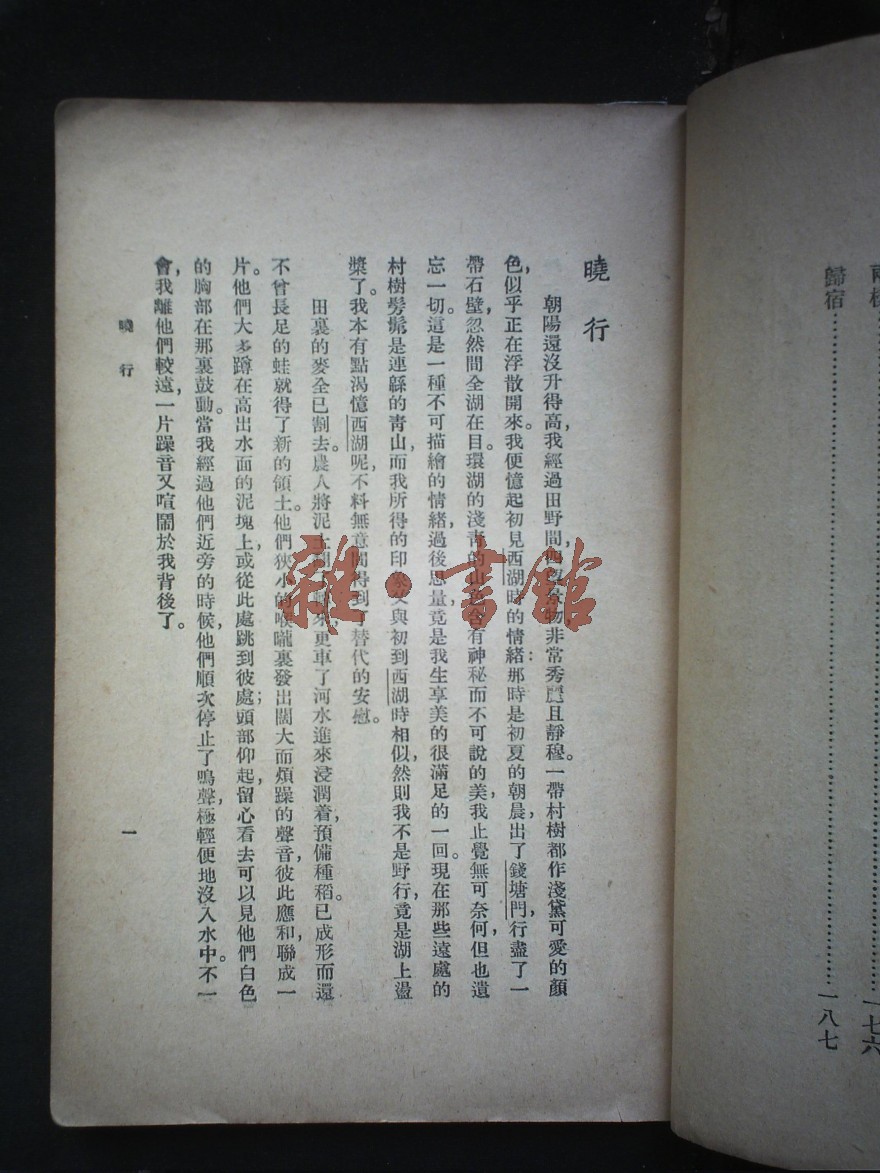 兩樣……一七六
歸宿……一八七
曉行
朝陽還沒升得高，我經過田野間，四望景物非常秀麗且靜穆。一帶村樹都作淺黛可愛的顏
色，似乎正在浮散開來。我便憶起初見西湖時的情緒：那時是初夏的朝晨，出了錢塘門，行盡了一
帶石壁，忽然間全湖在目。環湖的淺青的山含有神秘而不可說的美，我止覺無可奈何，但也遺
忘一切。這是一種不可描繪的情緒，過後思量，竟是我生享美的很滿足的一回。現在那些遠處的
村樹髣髴是連緜的青山，而我所得的印象又與初到西湖時相似，然則我不是野行，竟是湖上盪
槳了。我本有點渴憶西湖呢，不料無意間得到了替代的安慰。
田裏的麥全已割去。農人將泥土，更車了河水進來浸潤着，預備種稻。已成形而還
不曾長足的蛙就得了新的領土。他們狹小的喉嚨裏發出闊大而煩躁的聲音，彼此應和，聯成一
片。他們大多蹲在高出水面的泥塊上，或從此處跳到彼處；頭部仰起，留心看去，可以見他們白色
的胸部在那裏鼓動。當我經過他們近旁的時候，他們順次停止了鳴聲，極輕便地沒入水中。不一
會，我離他們較遠，一片躁音又喧鬧於我背後了。
曉行
一
雜·書館